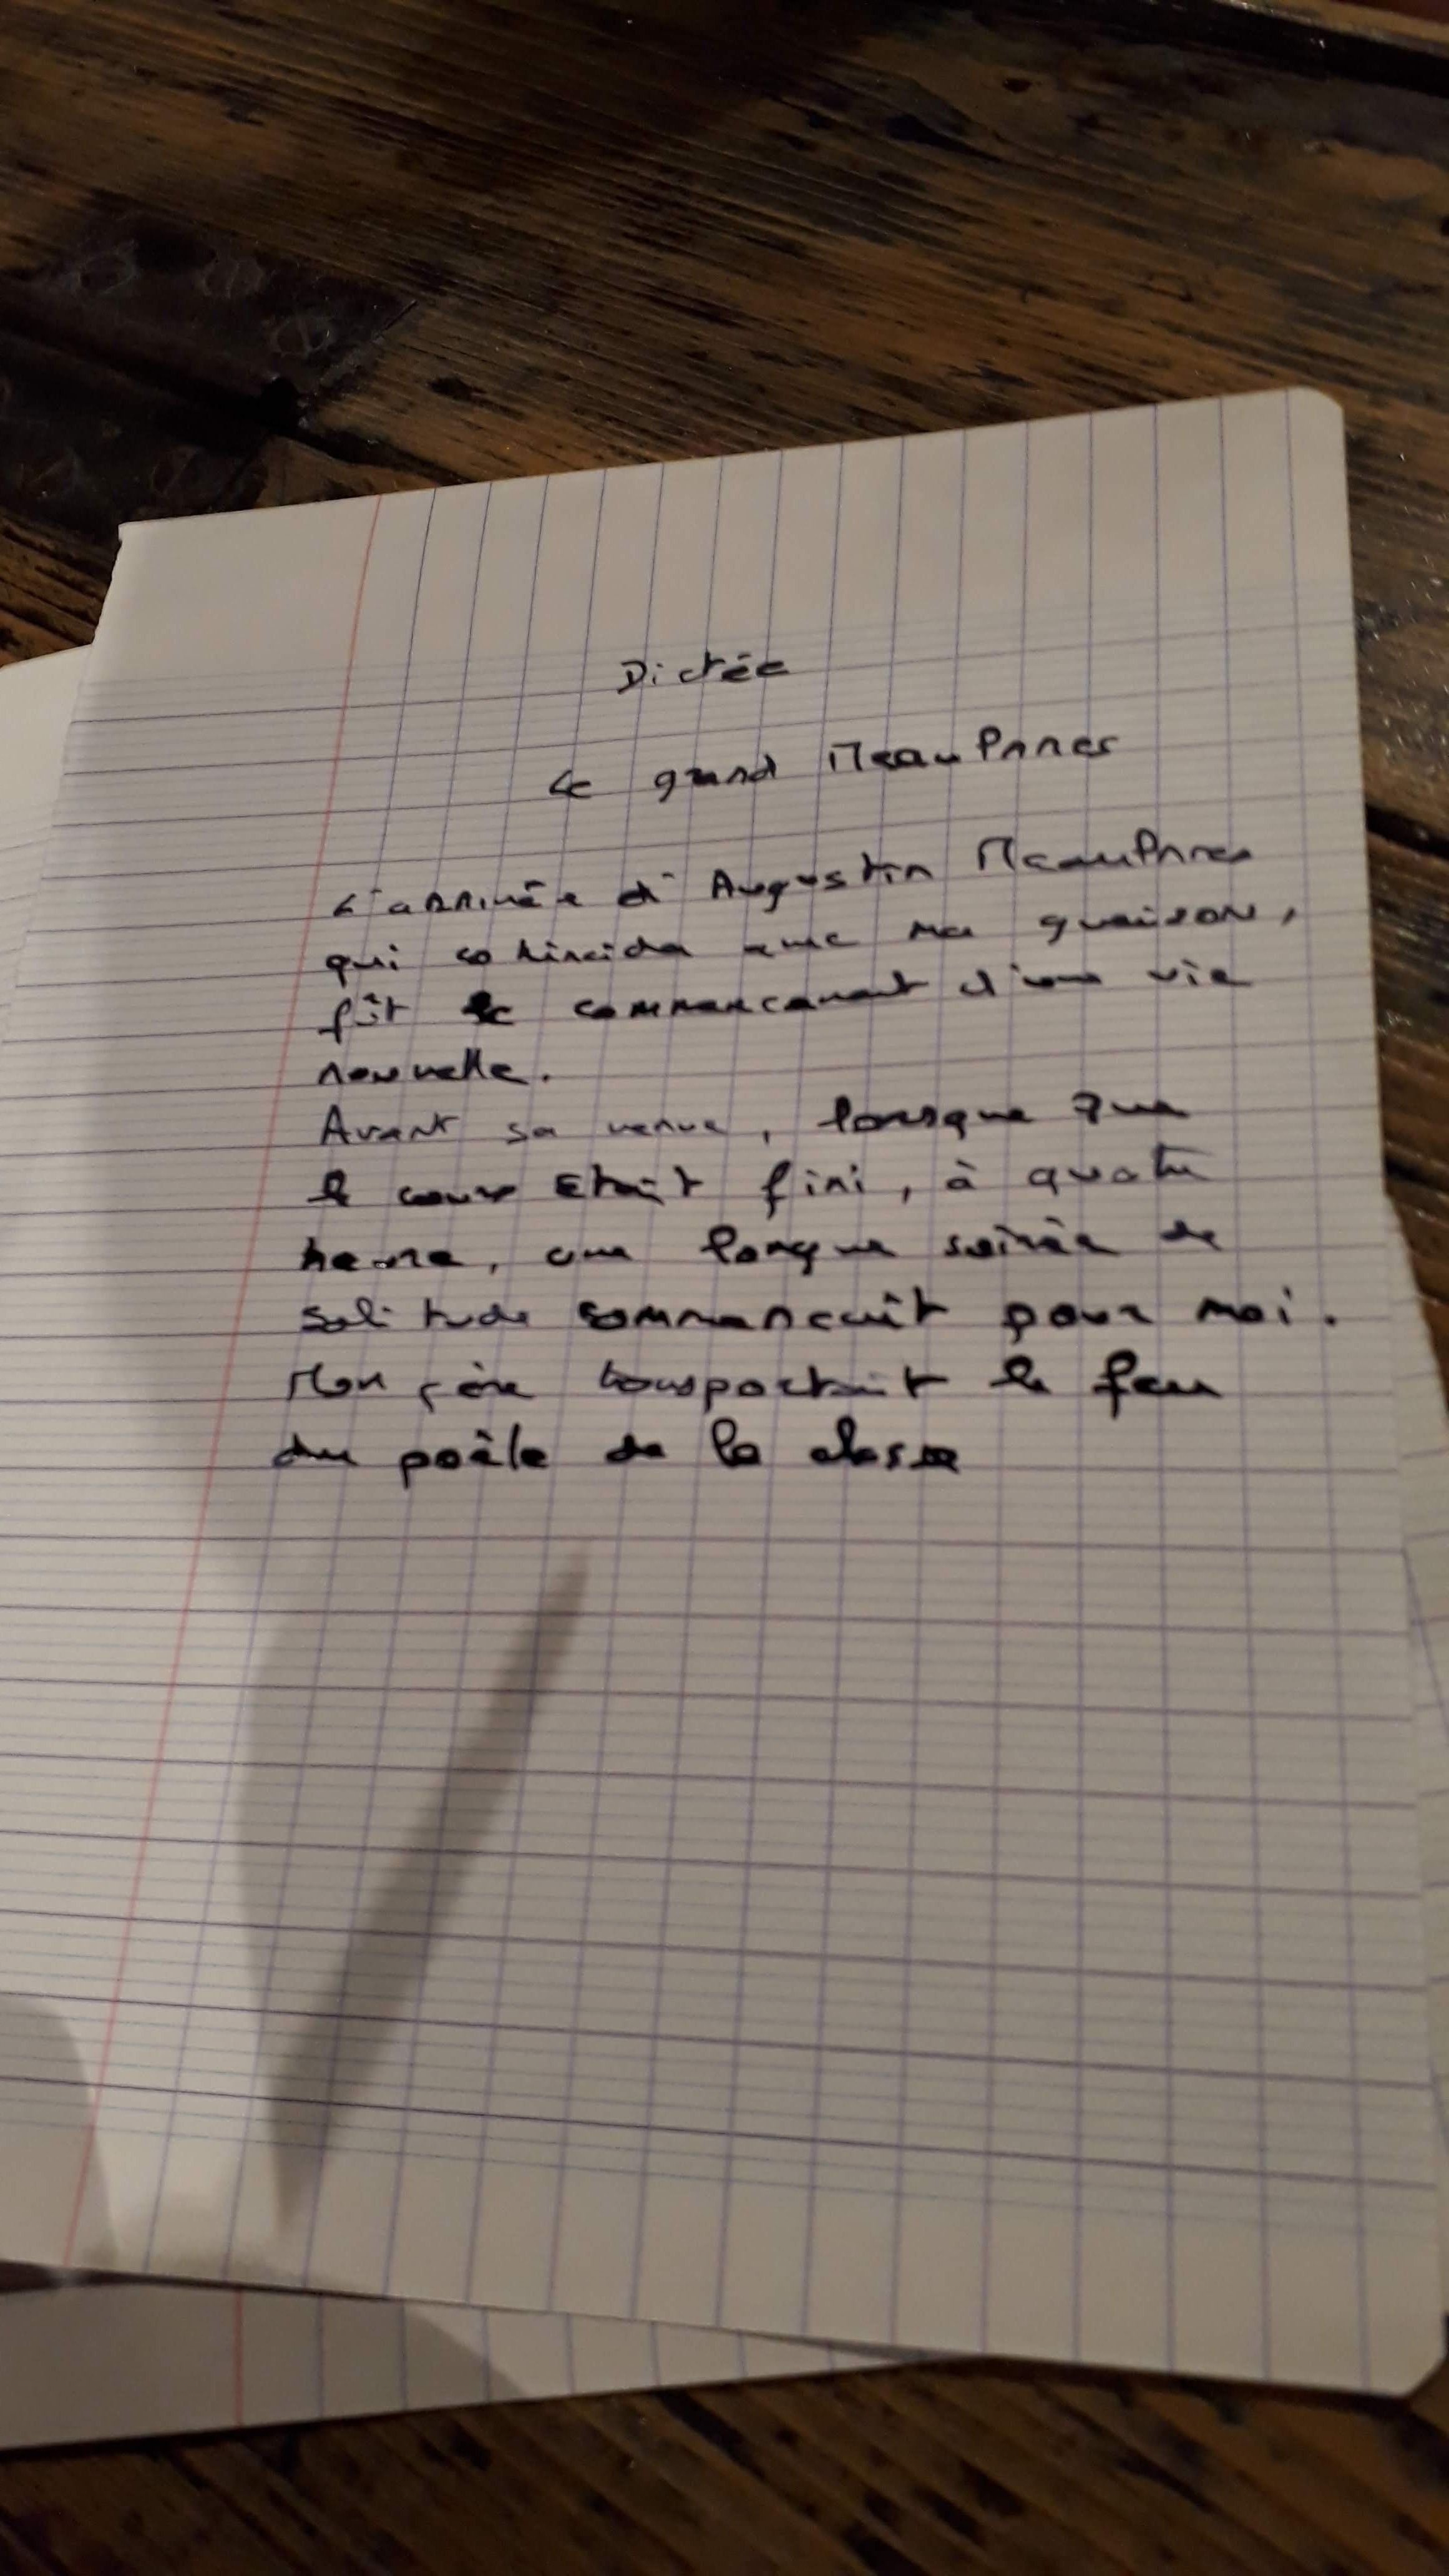 Dictée
Le grand Meaulnnes
L'arrivée d'Augustin Meaulnnes
qui cohincida avec ma guaison,
fût le commencament d'une vie
nouvelle.
Avant sa venue, lorsque que
le cour était fini, à quatre
heure, une longue soirée de
solitude commançait pour moi.
Mon père transportait le feu
du poêle de la classe